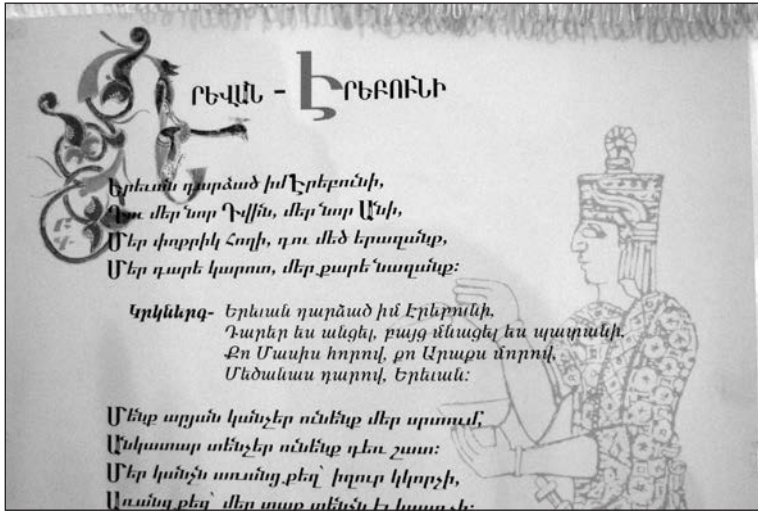 ԵՐԵՎԱՆ - ԷՐԵԲՈՒՆԻ
Երեւան դարձած իմ Էրեբունի,
Դու մեր նոր Դվին, մեր նոր Անի,
Մեր փոքրիկ Հողի, դու մեծ երազանք,
Մեր դարե կարոտ, մեր քարե նազանք:
Կրկներգ- Երեւան դարձած իմ Էրեբունի,
Դարեր ես անցել, բայց մնացել ես պատանի.
Քո Մասիս հորով, քո Արաքս մորով,
Մեծանաս դարով, Երեւան:
Մենք արյան կանչեր ունենք մեր սրտում,
Անկատար տենչեր ունենք դեռ շատ:
Մեր կանչն առանց քեզ՝ իզուր կկորչի,
Առանց քեզ՝ մեր տաք տենչն էլ կսառչի: